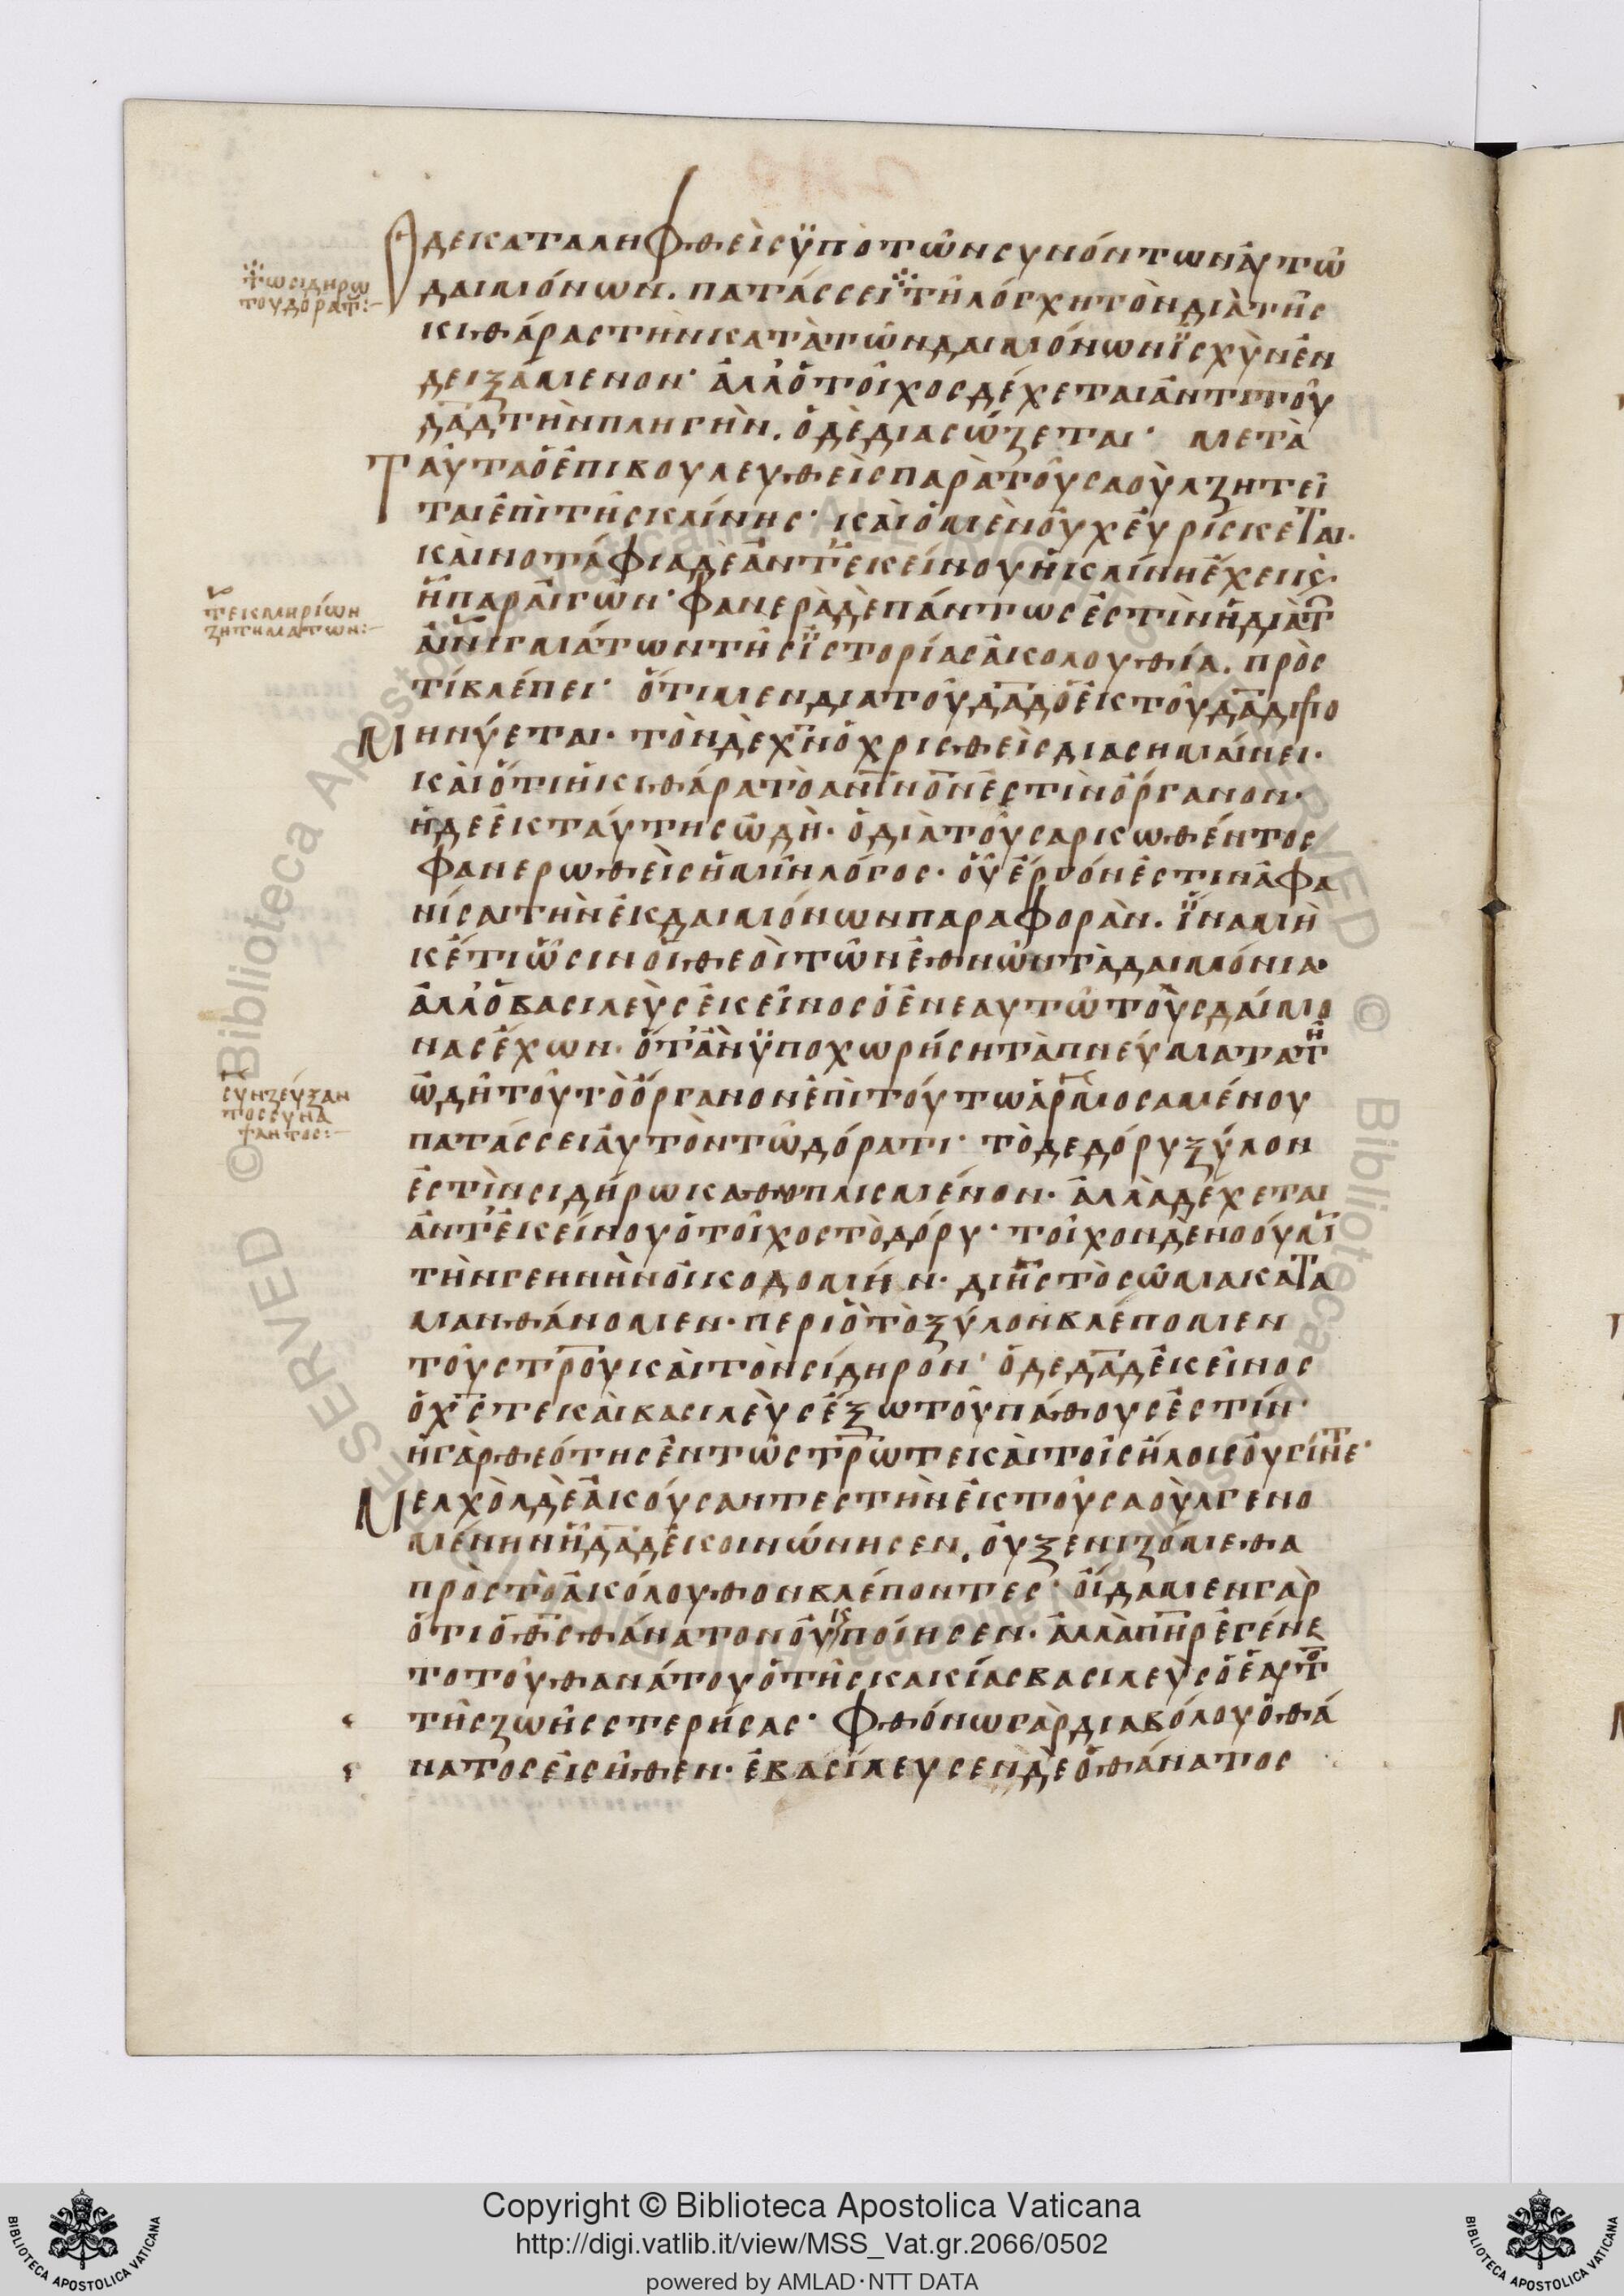 Ὁ δε καταληφθεὶς ϋπὸ τῶν συνόντων αὐτῶ
※ ω σιδηρω
του δορατ :-
δαιμόνων. πατάσσει ※ τῆ λόγχη τὸν διὰ τῆς
κιθάρας τὴν κατὰ τῶν δαιμόνων ϊσχὺν ἐν
δειξάμενον· ἀλλ' ὁ τοῖχος δέχεται ἀντὶ τοῦ
δαδ τὴν πληγὴν. ὁ δὲ διασώζεται· μετὰ
Ταῦτα ὁ ἐπιβουλευθεὶς παρὰ τοῦ σαοὺλ ζητεῖ
ται ἐπὶ τῆς κλίνης· καὶ ὁ μὲν οὐχ εὑρίσκεται·
καινοτάφια δὲ ἀντ' ἐκείνου ἡ κλίνη ἔχει κς·
ἥπαρ αἰγῶν· φανερὰ δὲ πάντως ἐστὶν ἡ διὰ τ
τεκμηρίων
ζητηματων :-
αἰνιγμάτων τῆς ϊστορίας ἀκολουθία. πρὸς
τί βλέπει· ὅτι μεν δια τοῦ δαδ ὁ ἐκ τοῦ δαδ μο
Μηνύεται· τὸν δὲ χν ὁ χρισθεὶς διασημαίνει·
καὶ ὅτι ἡ κιθάρα τὸ ανινόν ἐστὶν ὄργανον·
ἡ δε ἐκ ταύτης ὠδὴ· ὁ διὰ τοῦ σαρκωθέντος
φανερωθεὶς ἡμῖν λόγος· οὗ ἔργόν ἐστιν ἀφα
νίσαι τὴν ἐκ δαιμόνων παραφορὰν. ΐνα μὴ
κέτι ὦσιν οἱ θεοὶ τῶν ἐθνῶν τὰ δαιμόνια·
ἀλλ' ὁ βασιλεὺς ἐκεῖνος ὁ ἐν εαυτῶ τοὺς δαίμο
νας ἔχων· ὅτ' ἂν ϋποχωρήση τὰ πνεύματα τῆ
ὠδῆ τοῦ τὸ ὄργανον ἐπὶ τούτω ἁρμοσαμένου
συνζεύξαν
τος συνα
ψαντος :-
πατάσσει αὐτὸν τῶ δόρατι· τὸ δε δόρυ ξύλον
ἐστὶν σιδήρω καθωπλισμένον· ἀλλὰ δέχεται
ἀντ' ἐκείνου ὁ τοῖχος τὸ δόρυ· τοῖχον δὲ νοούμ
τὴν γεννην οἰκοδομήν· δι ἧς τὸ σῶμα κατα
μανθάνομεν· περι ὃ τὸ ξύλον βλέπομεν
τοῦ στρου καὶ τὸν σίδηρον· ὁ δε δαδ ἐκεῖνος
ὁ χς τε καὶ βασιλεὺς ἔξω τοῦ πάθους ἐστίν·
ἡ γὰρ θεότης ἐν τῶ στρω τε καὶ τοῖς ἥλοις οὐ γίνετ·
Μελχὸλ δὲ ἀκούσαντες τὴν ἐκ τοῦ σαοὺλ γενο
μένην ἣ δαδ ἐκοινώνησεν. οὐ ξενιζόμεθα
πρὸς τὸ ἀκόλουθον βλέποντες· οἴδαμεν γὰρ
ὅτι ὁ θς θάνατον οὐκ ποίησεν· ἀλλὰ πηρ ἐγένε
το τοῦ θανάτου ὁ τῆς κακίας βασιλεὺς ὁ ἑαυτὸ
τῆς ζωῆς στερήσας· φθόνω γὰρ διαβόλου ὁ θά
νατος εἰσῆθεν· ἐβασίλευσεν δε ὁ θάνατος
ALL RIGHTS RESERVED © Biblioteca Apostolica Vaticana
Copyright © Biblioteca Apostolica Vaticana
http://digi.vatlib.it/view/MSS_Vat.gr.2066/0502
powered by AMLAD·NTT DATA
BIBLIOTECA APOSTOLICA VATICANA
BIBLIOTECA APOSTOLICA VATICANA